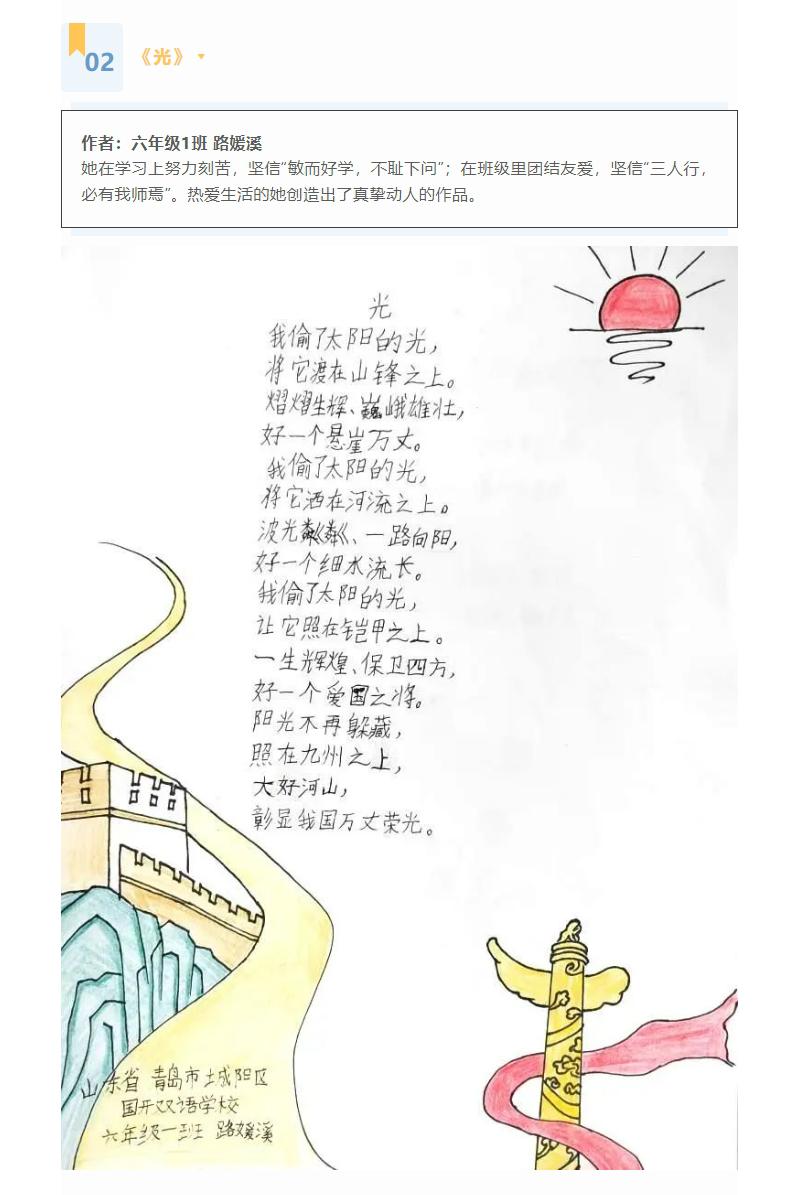 02
《光》
作者：六年级1班 路媛溪
她在学习上努力刻苦，坚信“敏而好学，不耻下问”；在班级里团结友爱，坚信“三人行，
必有我师焉”。热爱生活的她创造出了真挚动人的作品。
光
我偷了太阳的光，
将它渡在山锋之上。
熠熠生辉、巍峨雄壮，
好一个悬崖万丈。
我偷了太阳的光，
将它洒在河流之上。
波光粼粼、一路向阳，
好一个细水流长。
我偷了太阳的光，
让它照在铠甲之上。
一生辉煌、保卫四方，
好一个爱国之将。
阳光不再躲藏，
照在九州之上，
大好河山，
彰显我国万丈荣光。
山东省 青岛市城阳区
国开双语学校
六年级一班 路媛溪